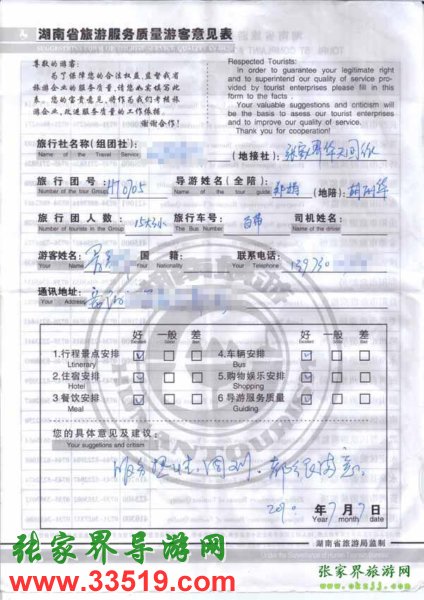 湖南省旅游服务质量游客意见表
尊敬的游客:
为了保障您的合法权益,监督我省
旅游企业的服务质量,请您如实填写此
表。您的宝贵意见,将作为我们考核旅
游企业,改进服务质量的工作依据。
谢谢合作!
Respected Tourists:
In order to guarantee your legitimate right
and to superintend our quality of service pro-
vided by tourist enterprises please fill in this
form to the facts .
Your valuable suggestions and criticism will
be the basis to assess our tourist enterprises
and to improve our quality of service.
Thank you for cooperation!
旅行社名称(组团社):
(地接社):
Name of the Travel Service
旅行团号:
导游姓名(全陪)
(地陪)
Number of the tour Group
Name of the tour guide
旅行团人数: 15大1小
旅行车号: 自带
司机姓名:
Number of tourists in the Group
The Bus Number
Name of the driver
游客姓名:
国籍:
联系电话: 139730
Your Name
Your Nationality
Your Telephone
通讯地址:
Your Address
好 一般 差
好 一般 差
1.行程景点安排
4.车辆安排
Ltinerary
Bus
2.住宿安排
5.购物娱乐安排
Hotel
Shopping
3.餐饮安排
6.导游服务质量
Meal
Guiding
您的具体意见及建议:
Your suggestions and critism
服务热情,周到。都很满意。
年7月7日
Year month date
湖南省旅游局监制
张家界导游网
www.33519.com
张家界旅游网